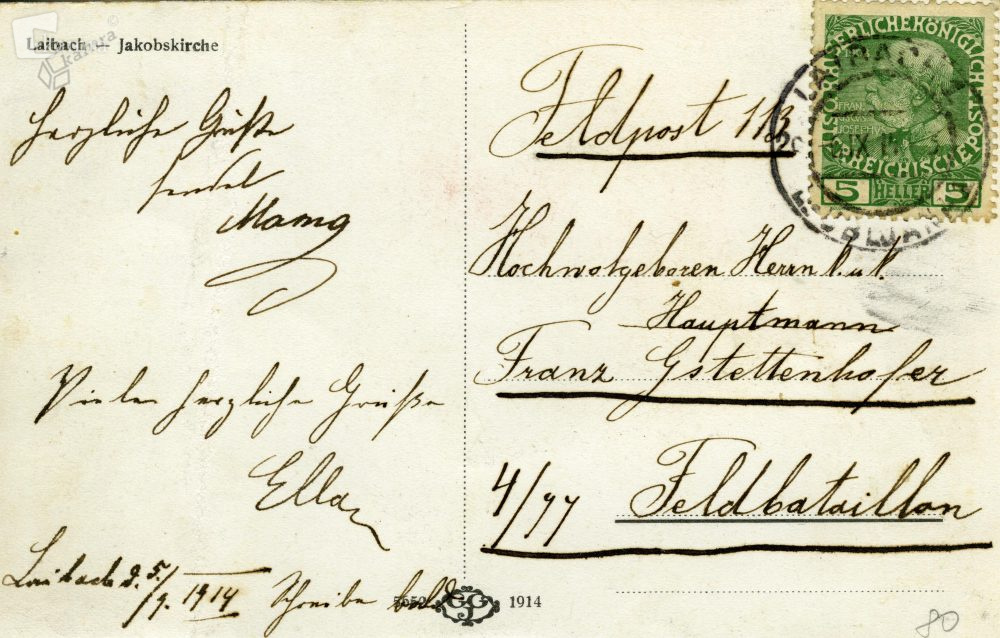 Laibach — Jakobskirche
Herzliche Grüße
sendet
Mama
Viele herzliche Grüße
Ella
Laibach d. 5./9. 1914 Schreibe bald
Feldpost 113
Hochwolgeboren Herrn k.u.k.
Hauptmann
Franz Gstettenhofer
4/77 Feldbataillon
1914
80
KAISERLICHE KÖNIGLICHE
ÖSTERREICHISCHE POST
FRANCISCUS
JOSEPHUS
5 HELLER 5
LAIBACH
LJUBLJANA
kamra